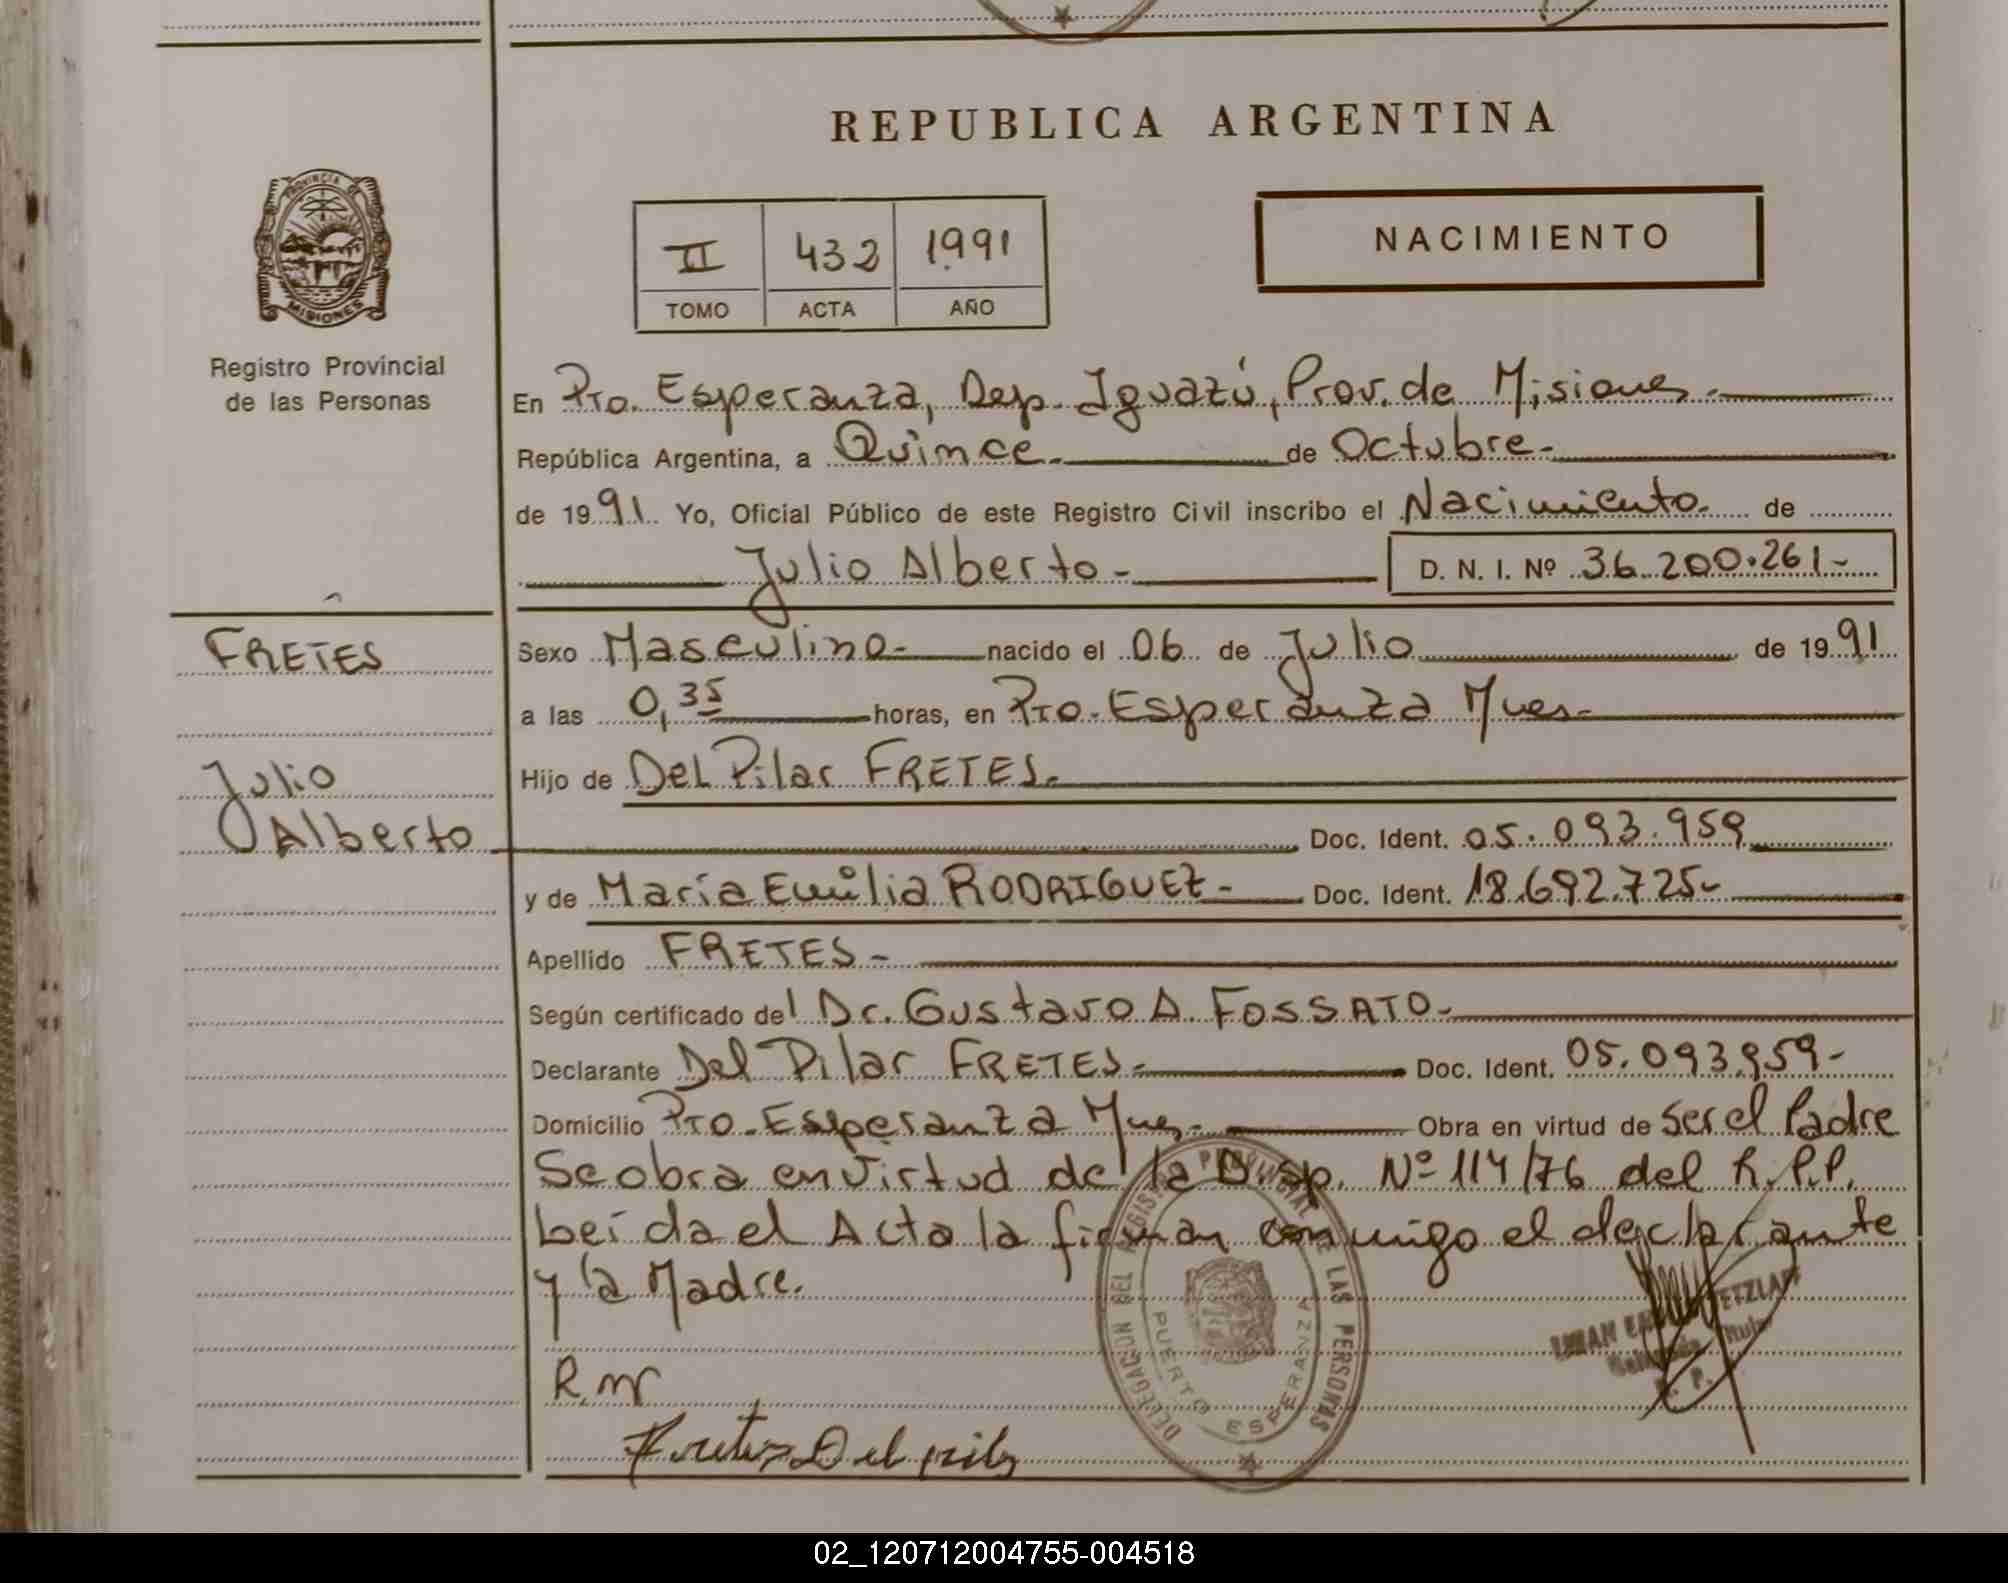 REPUBLICA ARGENTINA
PROVINCIA DE
MISIONES
Registro Provincial
de las Personas
II 432 1991
TOMO ACTA AÑO
NACIMIENTO
En Pto. Esperanza, Dep. Iguazú, Prov. de Misiones.-
República Argentina, a Quince.- de Octubre.-
de 1991. Yo, Oficial Público de este Registro Civil inscribo el Nacimiento. de
Julio Alberto.-
D. N. I. Nº 36.200.261-
FRETES
Julio
Alberto
Sexo Masculino- nacido el 06 de Julio de 1991
a las 0,35 horas, en Pto. Esperanza Mnes-
Hijo de Del Pilar FRETES.-
Doc. Ident. 05.093.959
y de María Emilia RODRIGUEZ- Doc. Ident. 18.692.725-
Apellido FRETES-
Según certificado del Dr. Gustavo A. FOSSATO-
Declarante Del Pilar FRETES- Doc. Ident. 05.093.959-
Domicilio Pto. Esperanza Mnes- Obra en virtud de Ser el Padre
Se obra en virtud de la Disp. Nº 114/76 del R.P.P.
Leída el Acta la firman conmigo el declarante
y la Madre.
DELEGACION DEL REGISTRO PROVINCIAL DE LAS PERSONAS
PUERTO ESPERANZA
R. P.
Fretes Del pilar
02_120712004755-004518